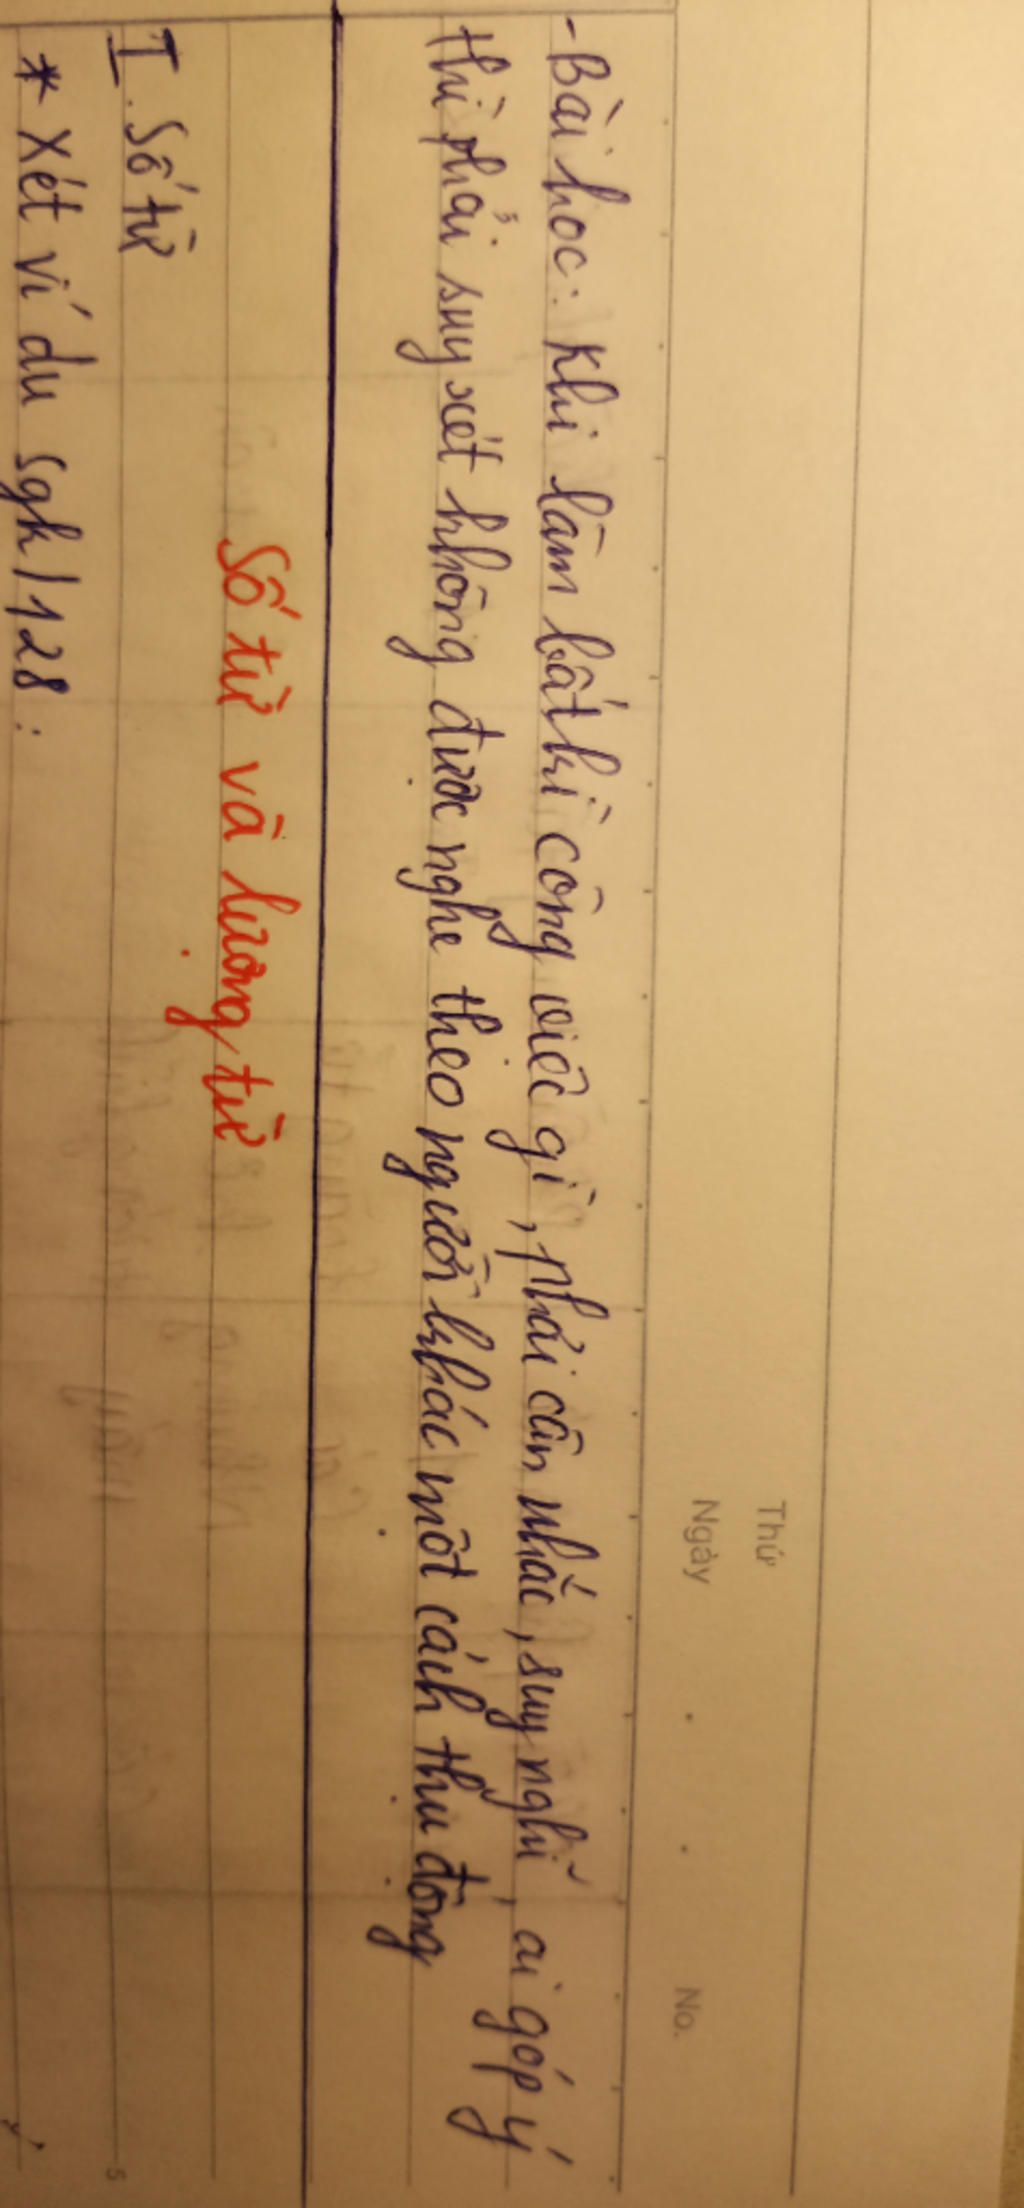 Thứ
Ngày
No.
- Bài học: Khi làm bất kì công việc gì, phải cân nhắc, suy nghĩ, ai góp ý
thì phải suy xét không được nghe theo người khác một cách thụ động
Số từ và lượng từ
I. Số từ
* Xét ví dụ sgk/128:
5